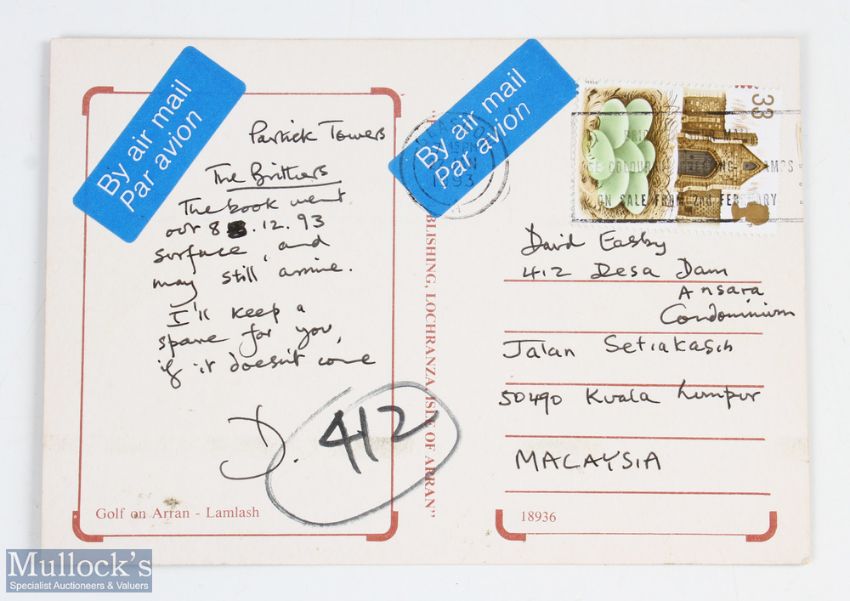 By air mail
Par avion
Partick Towers
The Brithers
The book went
out 8 .12.93
surface, and
may still arrive.
I'll keep a
spare for you,
if it doesn't come
D.
412
Golf on Arran - Lamlash
PUBLISHING, LOCHRANZA, ISLE OF ARRAN"
By air mail
Par avion
1993
33
ON SALE FROM FEBRUARY
David Easby
412 Desa Dam
Ansara
Condominium
Jalan Setiakasih
50490 Kuala Lumpur
MALAYSIA
18936
Mullock's
Specialist Auctioneers & Valuers